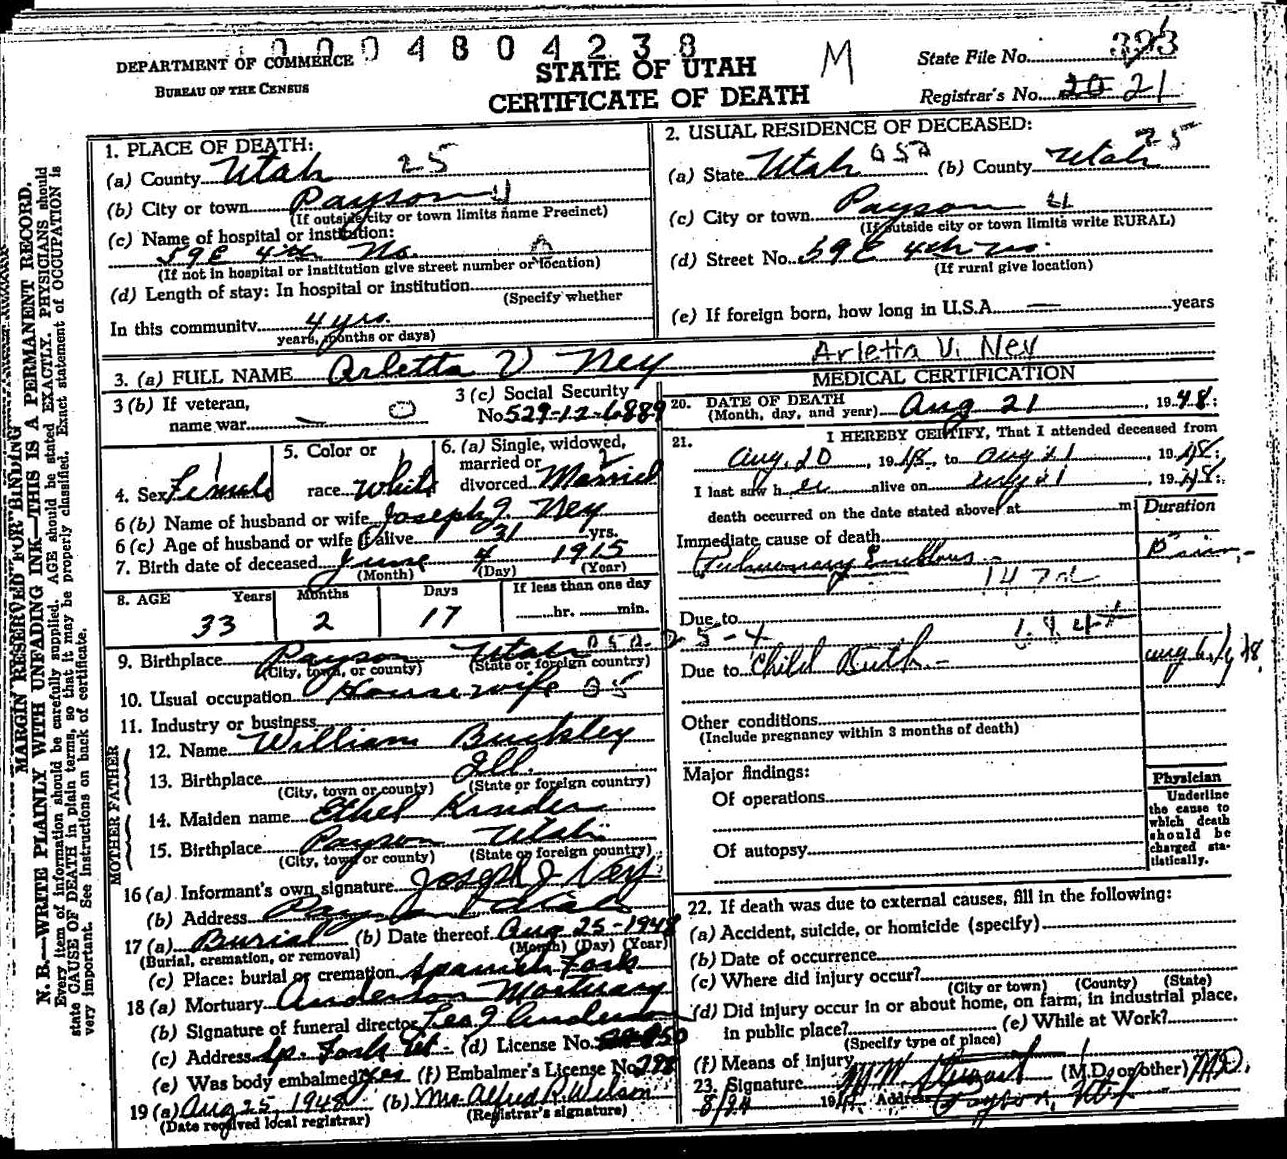 0004804238
DEPARTMENT OF COMMERCE
BUREAU OF THE CENSUS
STATE OF UTAH
CERTIFICATE OF DEATH
M
State File No. 323
Registrar's No. 20 21
MARGIN RESERVED FOR BINDING
N. B.—WRITE PLAINLY WITH UNFADING INK—THIS IS A PERMANENT RECORD.
Every item of information should be carefully supplied. AGE should be stated EXACTLY. PHYSICIANS should
state CAUSE OF DEATH in plain terms, so that it may be properly classified. Exact statement of OCCUPATION is
very important. See instructions on back of certificate.
1. PLACE OF DEATH:
(a) County Utah 25
(b) City or town Payson
(If outside city or town limits name Precinct)
(c) Name of hospital or institution:
59 E 4th No.
(If not in hospital or institution give street number or location)
(d) Length of stay: In hospital or institution
(Specify whether
In this community 4 yrs.
years, months or days)
2. USUAL RESIDENCE OF DECEASED:
(a) State Utah 052 (b) County Utah 25
(c) City or town Payson
(If outside city or town limits write RURAL)
(d) Street No. 59 E 4th No.
(If rural give location)
(e) If foreign born, how long in U.S.A. — years
3. (a) FULL NAME Arletta V Ney
Arletta V. Ney
3 (b) If veteran,
name war — 0
3 (c) Social Security
No. 529-12-6889
4. Sex Female
5. Color or
race White
6. (a) Single, widowed,
married or
divorced Married
6 (b) Name of husband or wife Joseph J. Ney
6 (c) Age of husband or wife if alive 31 yrs.
7. Birth date of deceased June 4 1915
(Month) (Day) (Year)
8. AGE Years Months Days If less than one day
33 2 17 hr. min.
9. Birthplace Payson Utah
(City, town, or county) (State or foreign country)
10. Usual occupation Housewife 05
11. Industry or business
FATHER
12. Name William Buckley
13. Birthplace Ill.
(City, town or county) (State or foreign country)
MOTHER
14. Maiden name Ethel
15. Birthplace Payson Utah
(City, town or county) (State or foreign country)
16 (a) Informant's own signature Joseph J Ney
(b) Address Payson Utah
17 (a) Burial (b) Date thereof Aug 25-1948
(Burial, cremation, or removal) (Month) (Day) (Year)
(c) Place: burial or cremation Spanish Fork
18 (a) Mortuary Anderson Mortuary
(b) Signature of funeral director Leo J Anderson
(c) Address Sp. Fork Ut. (d) License No.
(e) Was body embalmed? Yes (f) Embalmer's License No. 298
19 (a) Aug 25, 1948 (b) Mrs Alfred R. Wilson
(Date received local registrar) (Registrar's signature)
MEDICAL CERTIFICATION
20. DATE OF DEATH
(Month, day, and year) Aug 21, 1948;
21. I HEREBY CERTIFY, That I attended deceased from
Aug. 20, 1948, to Aug 21, 1948;
I last saw her alive on Aug 21, 1948;
death occurred on the date stated above, at m
Duration
Immediate cause of death
Pulmonary Embolus -
Due to
25-4
Due to Child Birth - Aug 6/48
Other conditions
(Include pregnancy within 3 months of death)
Major findings:
Of operations
Of autopsy
Physician
Underline
the cause to
which death
should be
charged sta-
tistically.
22. If death was due to external causes, fill in the following:
(a) Accident, suicide, or homicide (specify)
(b) Date of occurrence
(c) Where did injury occur?
(City or town) (County) (State)
(d) Did injury occur in or about home, on farm, in industrial place,
in public place? (e) While at Work?
(Specify type of place)
(f) Means of injury
23. Signature M W Stewart (M.D. or other) MD.
8/24 1948 Address Payson, Utah